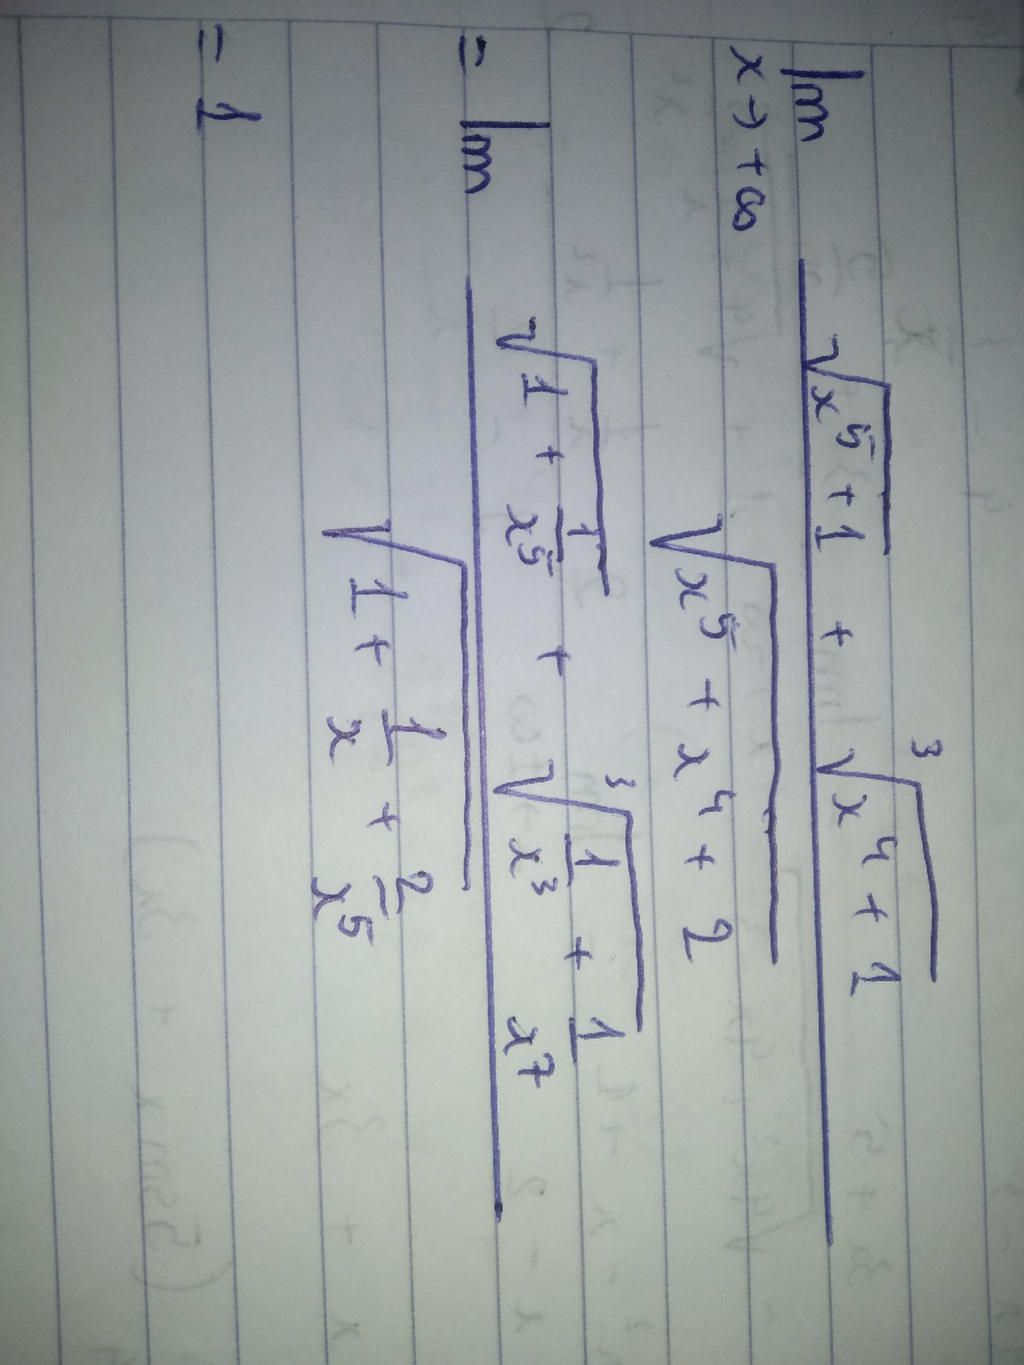 lim x→+∞ (√(x⁵+1) + ³√(x⁴+1)) / √(x⁵ + x⁴ + 2)
= lim (√(1 + 1/x⁵) + ³√(1/x³ + 1/x⁷)) / √(1 + 1/x + 2/x⁵)
= 1